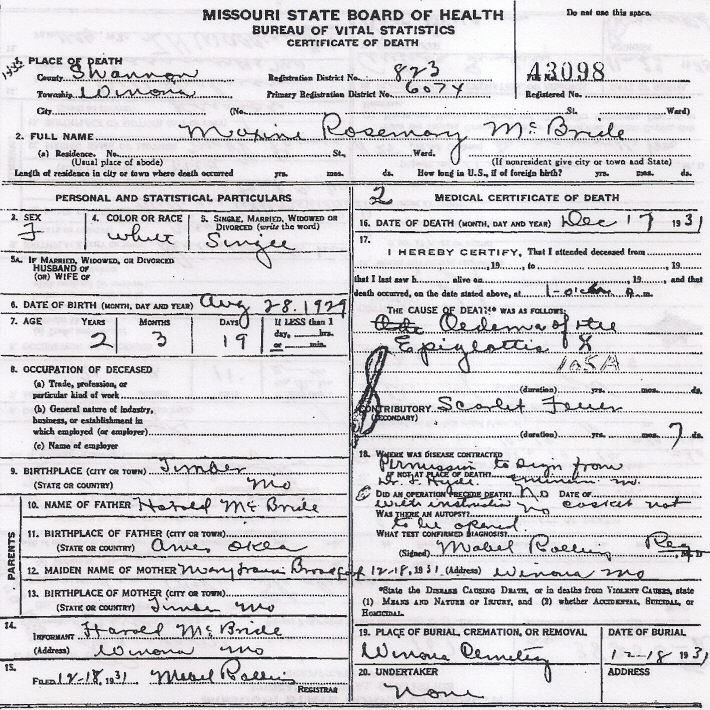 MISSOURI STATE BOARD OF HEALTH
BUREAU OF VITAL STATISTICS
CERTIFICATE OF DEATH
Do not use this space.
1. PLACE OF DEATH
County Shannon Registration District No. 823 File No. 43098
Township Winona Primary Registration District No. 6074 Registered No.
City (No. St. Ward)
2. FULL NAME Maxine Rosemary McBride
(a) Residence. No. St., Ward.
(Usual place of abode) (If nonresident give city or town and State)
Length of residence in city or town where death occurred yrs. mos. ds. How long in U.S., if of foreign birth? yrs. mos. ds.
PERSONAL AND STATISTICAL PARTICULARS
3. SEX 4. COLOR OR RACE 5. SINGLE, MARRIED, WIDOWED OR
DIVORCED (write the word)
F white Single
5A. IF MARRIED, WIDOWED, OR DIVORCED
HUSBAND OF
(OR) WIFE OF
6. DATE OF BIRTH (MONTH, DAY AND YEAR) Aug 28. 1929
7. AGE YEARS MONTHS DAYS If LESS than 1
day, hrs.
or min.
2 3 19
8. OCCUPATION OF DECEASED
(a) Trade, profession, or
particular kind of work
(b) General nature of industry,
business, or establishment in
which employed (or employer)
(c) Name of employer
9. BIRTHPLACE (CITY OR TOWN) Timber
(STATE OR COUNTRY) Mo
PARENTS
10. NAME OF FATHER Harold McBride
11. BIRTHPLACE OF FATHER (CITY OR TOWN)
(STATE OR COUNTRY) Ames Okla
12. MAIDEN NAME OF MOTHER Mary
13. BIRTHPLACE OF MOTHER (CITY OR TOWN)
(STATE OR COUNTRY) Timber Mo
14.
INFORMANT Harold McBride
(Address) Winona Mo
15.
FILED 12-18, 1931 Mabel Rollins
REGISTRAR
2 MEDICAL CERTIFICATE OF DEATH
16. DATE OF DEATH (MONTH, DAY AND YEAR) Dec 17 1931
17.
I HEREBY CERTIFY, That I attended deceased from
, 19 , to , 19
that I last saw h alive on , 19 , and that
death occurred, on the date stated above, at 1-o'clock A.m.
THE CAUSE OF DEATH* WAS AS FOLLOWS:
Oedema of the
Epiglottis
105A
(duration) yrs. mos. ds.
CONTRIBUTORY Scarlet Fever
(SECONDARY)
(duration) yrs. mos. 7 ds.
18. WHERE WAS DISEASE CONTRACTED
Permission to sign from
IF NOT AT PLACE OF DEATH?
Dr. F. Hyde. Mo.
DID AN OPERATION PRECEDE DEATH? No DATE OF
with instruction casket not
WAS THERE AN AUTOPSY? no
to be opened
WHAT TEST CONFIRMED DIAGNOSIS?
(Signed) Mabel Rollins Reg, M.D
12-18, 1931 (Address) Winona Mo
*State the DISEASE CAUSING DEATH, or in deaths from VIOLENT CAUSES, state
(1) MEANS AND NATURE OF INJURY, and (2) whether ACCIDENTAL, SUICIDAL, or
HOMICIDAL.
19. PLACE OF BURIAL, CREMATION, OR REMOVAL DATE OF BURIAL
Winona Cemetery 12-18 1931
20. UNDERTAKER ADDRESS
None